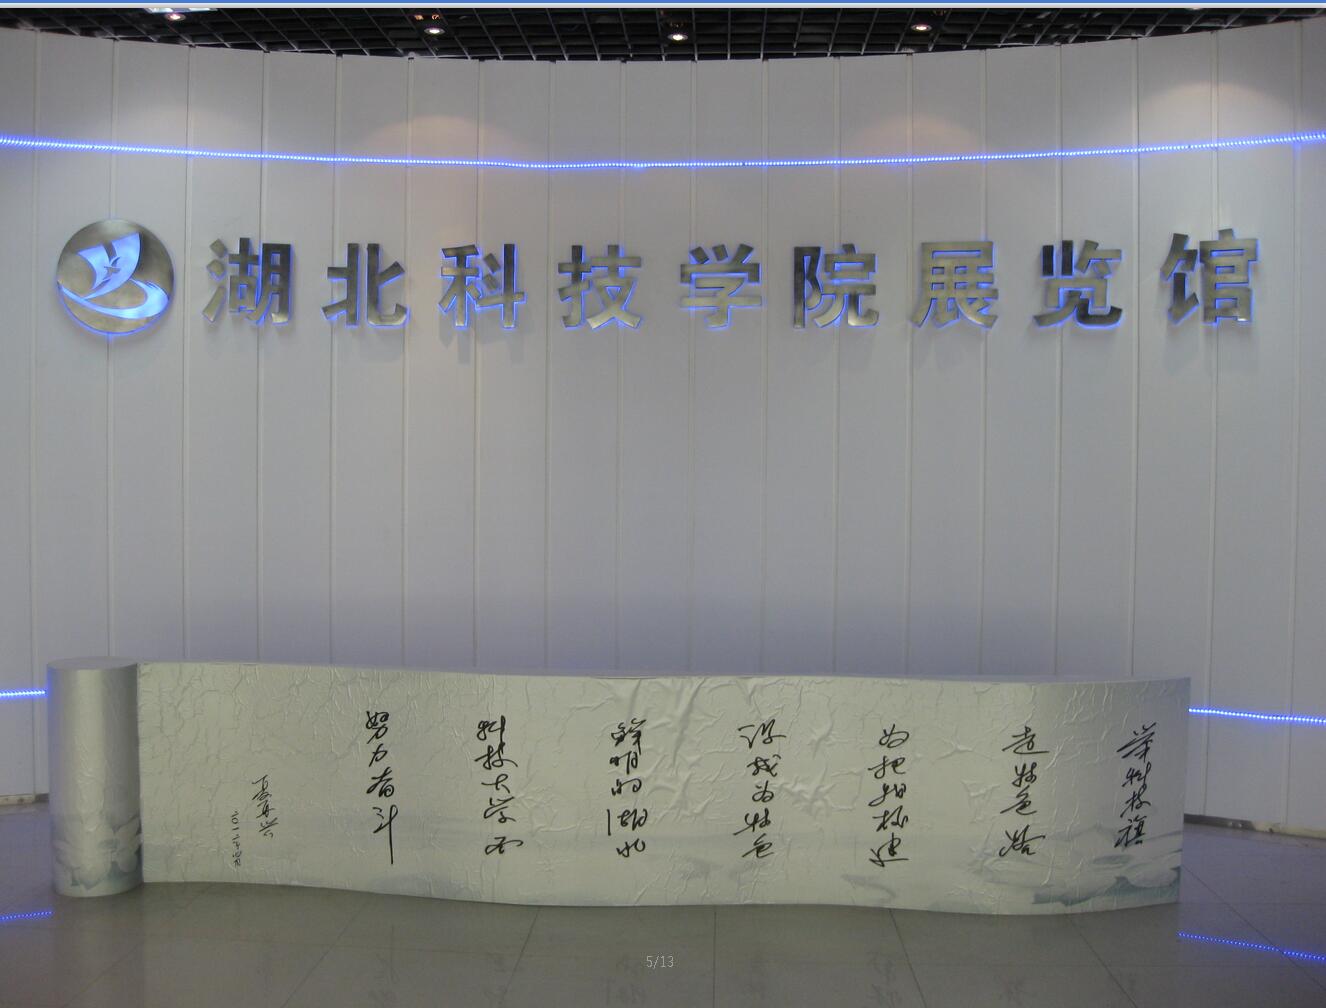 湖北科技学院展览馆
举科技旗
走特色路
为把把学校建
设成为特色
鲜明的湖北
科技大学而
努力奋斗
5/13